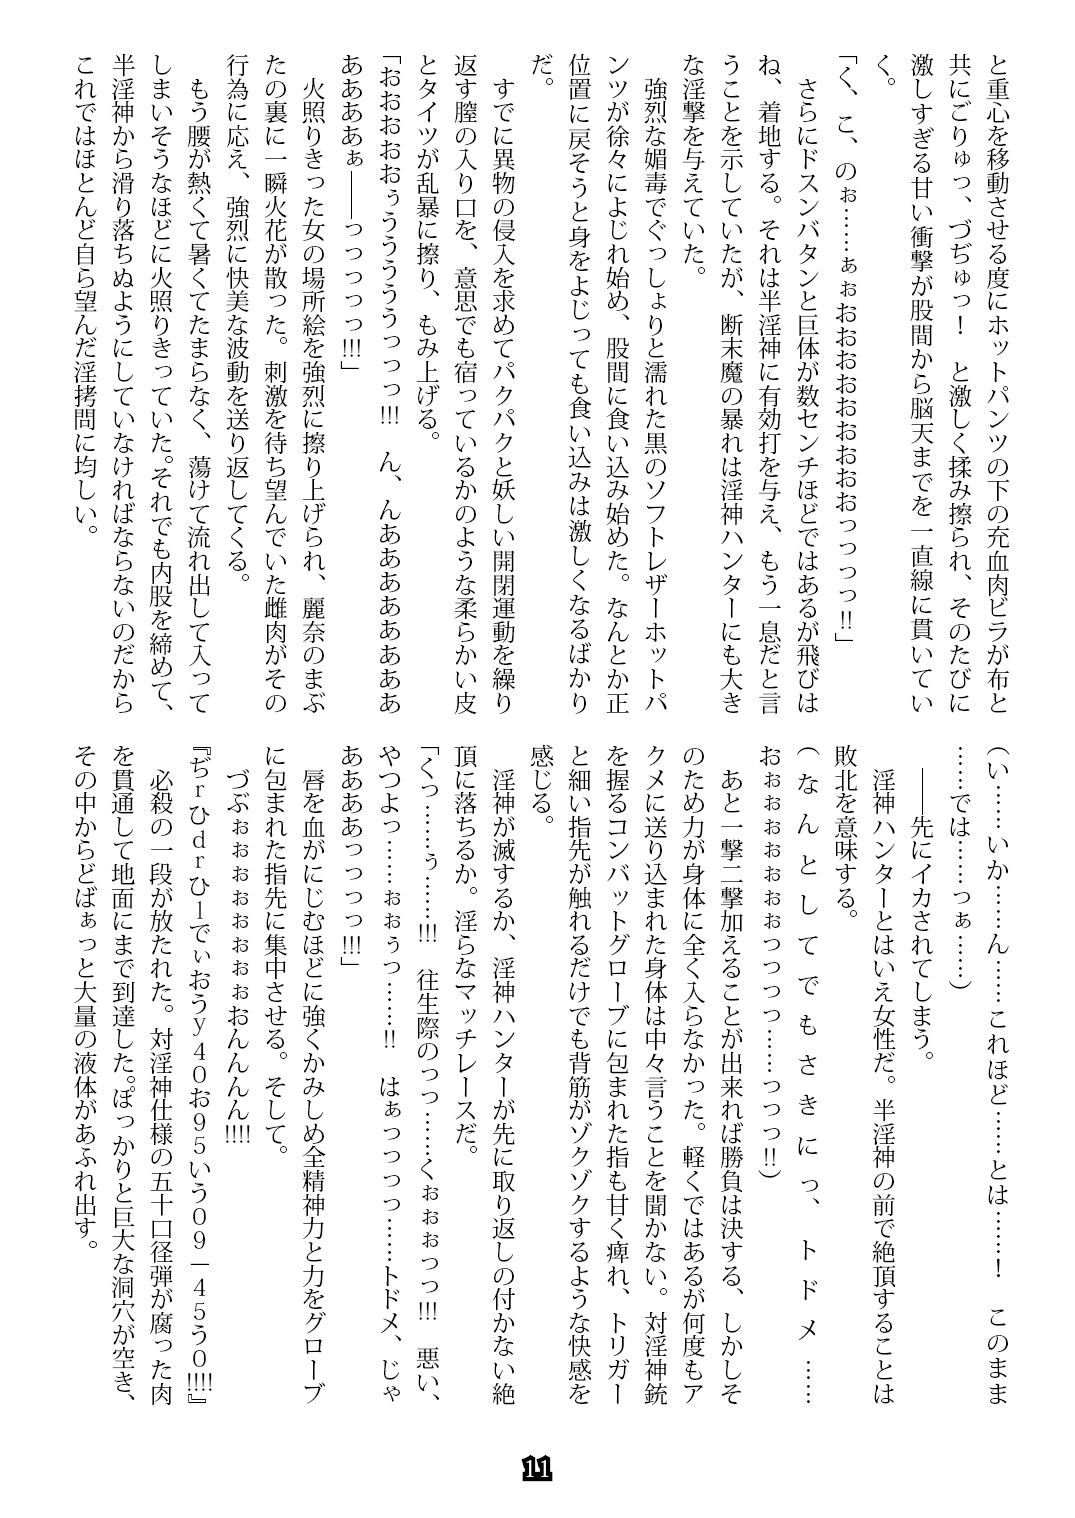 と重心を移動させる度にホットパンツの下の充血肉ビラが布と
共にごりゅっ、づぢゅっ！　と激しく揉み擦られ、そのたびに
激しすぎる甘い衝撃が股間から脳天までを一直線に貫いてい
く。
「く、こ、のぉ……ぁぉおおおおおおおおおっっっっ!!」
　さらにドスンバタンと巨体が数センチほどではあるが飛びは
ね、着地する。それは半淫神に有効打を与え、もう一息だと言
うことを示していたが、断末魔の暴れは淫神ハンターにも大き
な淫撃を与えていた。
　強烈な媚毒でぐっしょりと濡れた黒のソフトレザーホットパ
ンツが徐々によじれ始め、股間に食い込み始めた。なんとか正
位置に戻そうと身をよじっても食い込みは激しくなるばかり
だ。
　すでに異物の侵入を求めてパクパクと妖しい開閉運動を繰り
返す膣の入り口を、意思でも宿っているかのような柔らかい皮
とタイツが乱暴に擦り、もみ上げる。
「おおおおおぅうううううっっっ!!!　ん、んああああああああ
ああああぁ――っっっっっ!!!」
　火照りきった女の場所絵を強烈に擦り上げられ、麗奈のまぶ
たの裏に一瞬火花が散った。刺激を待ち望んでいた雌肉がその
行為に応え、強烈に快美な波動を送り返してくる。
　もう腰が熱くて暑くてたまらなく、蕩けて流れ出して入って
しまいそうなほどに火照りきっていた。それでも内股を締めて、
半淫神から滑り落ちぬようにしていなければならないのだから
これではほとんど自ら望んだ淫拷問に均しい。
（い……いか……ん……これほど……とは……！　このまま
……では……っぁ……）
　――先にイカされてしまう。
　淫神ハンターとはいえ女性だ。半淫神の前で絶頂することは
敗北を意味する。
（なんとしてでもさきにっ、トドメ……
おぉぉぉぉぉぉぉっっっっ……っっっ!!）
　あと一撃二撃加えることが出来れば勝負は決する、しかしそ
のため力が身体に全く入らなかった。軽くではあるが何度もア
クメに送り込まれた身体は中々言うことを聞かない。対淫神銃
を握るコンバットグローブに包まれた指も甘く痺れ、トリガー
と細い指先が触れるだけでも背筋がゾクゾクするような快感を
感じる。
　淫神が滅するか、淫神ハンターが先に取り返しの付かない絶
頂に落ちるか。淫らなマッチレースだ。
「くっ……ぅ……!!!　往生際のっっ……くぉぉぉっっ!!!　悪い、
やつよっ……ぉぉぅっ……!!　はぁっっっっ……トドメ、じゃ
ああああっっっっ!!!」
　唇を血がにじむほどに強くかみしめ全精神力と力をグローブ
に包まれた指先に集中させる。そして。
　づぶぉぉぉぉぉぉぉぉおんんんん!!!!
『ぢｒひｄｒひｌでぃおうｙ４０お９５いう０９－４５う０!!!!』
　必殺の一段が放たれた。対淫神仕様の五十口径弾が腐った肉
を貫通して地面にまで到達した。ぽっかりと巨大な洞穴が空き、
その中からどばぁっと大量の液体があふれ出す。
11